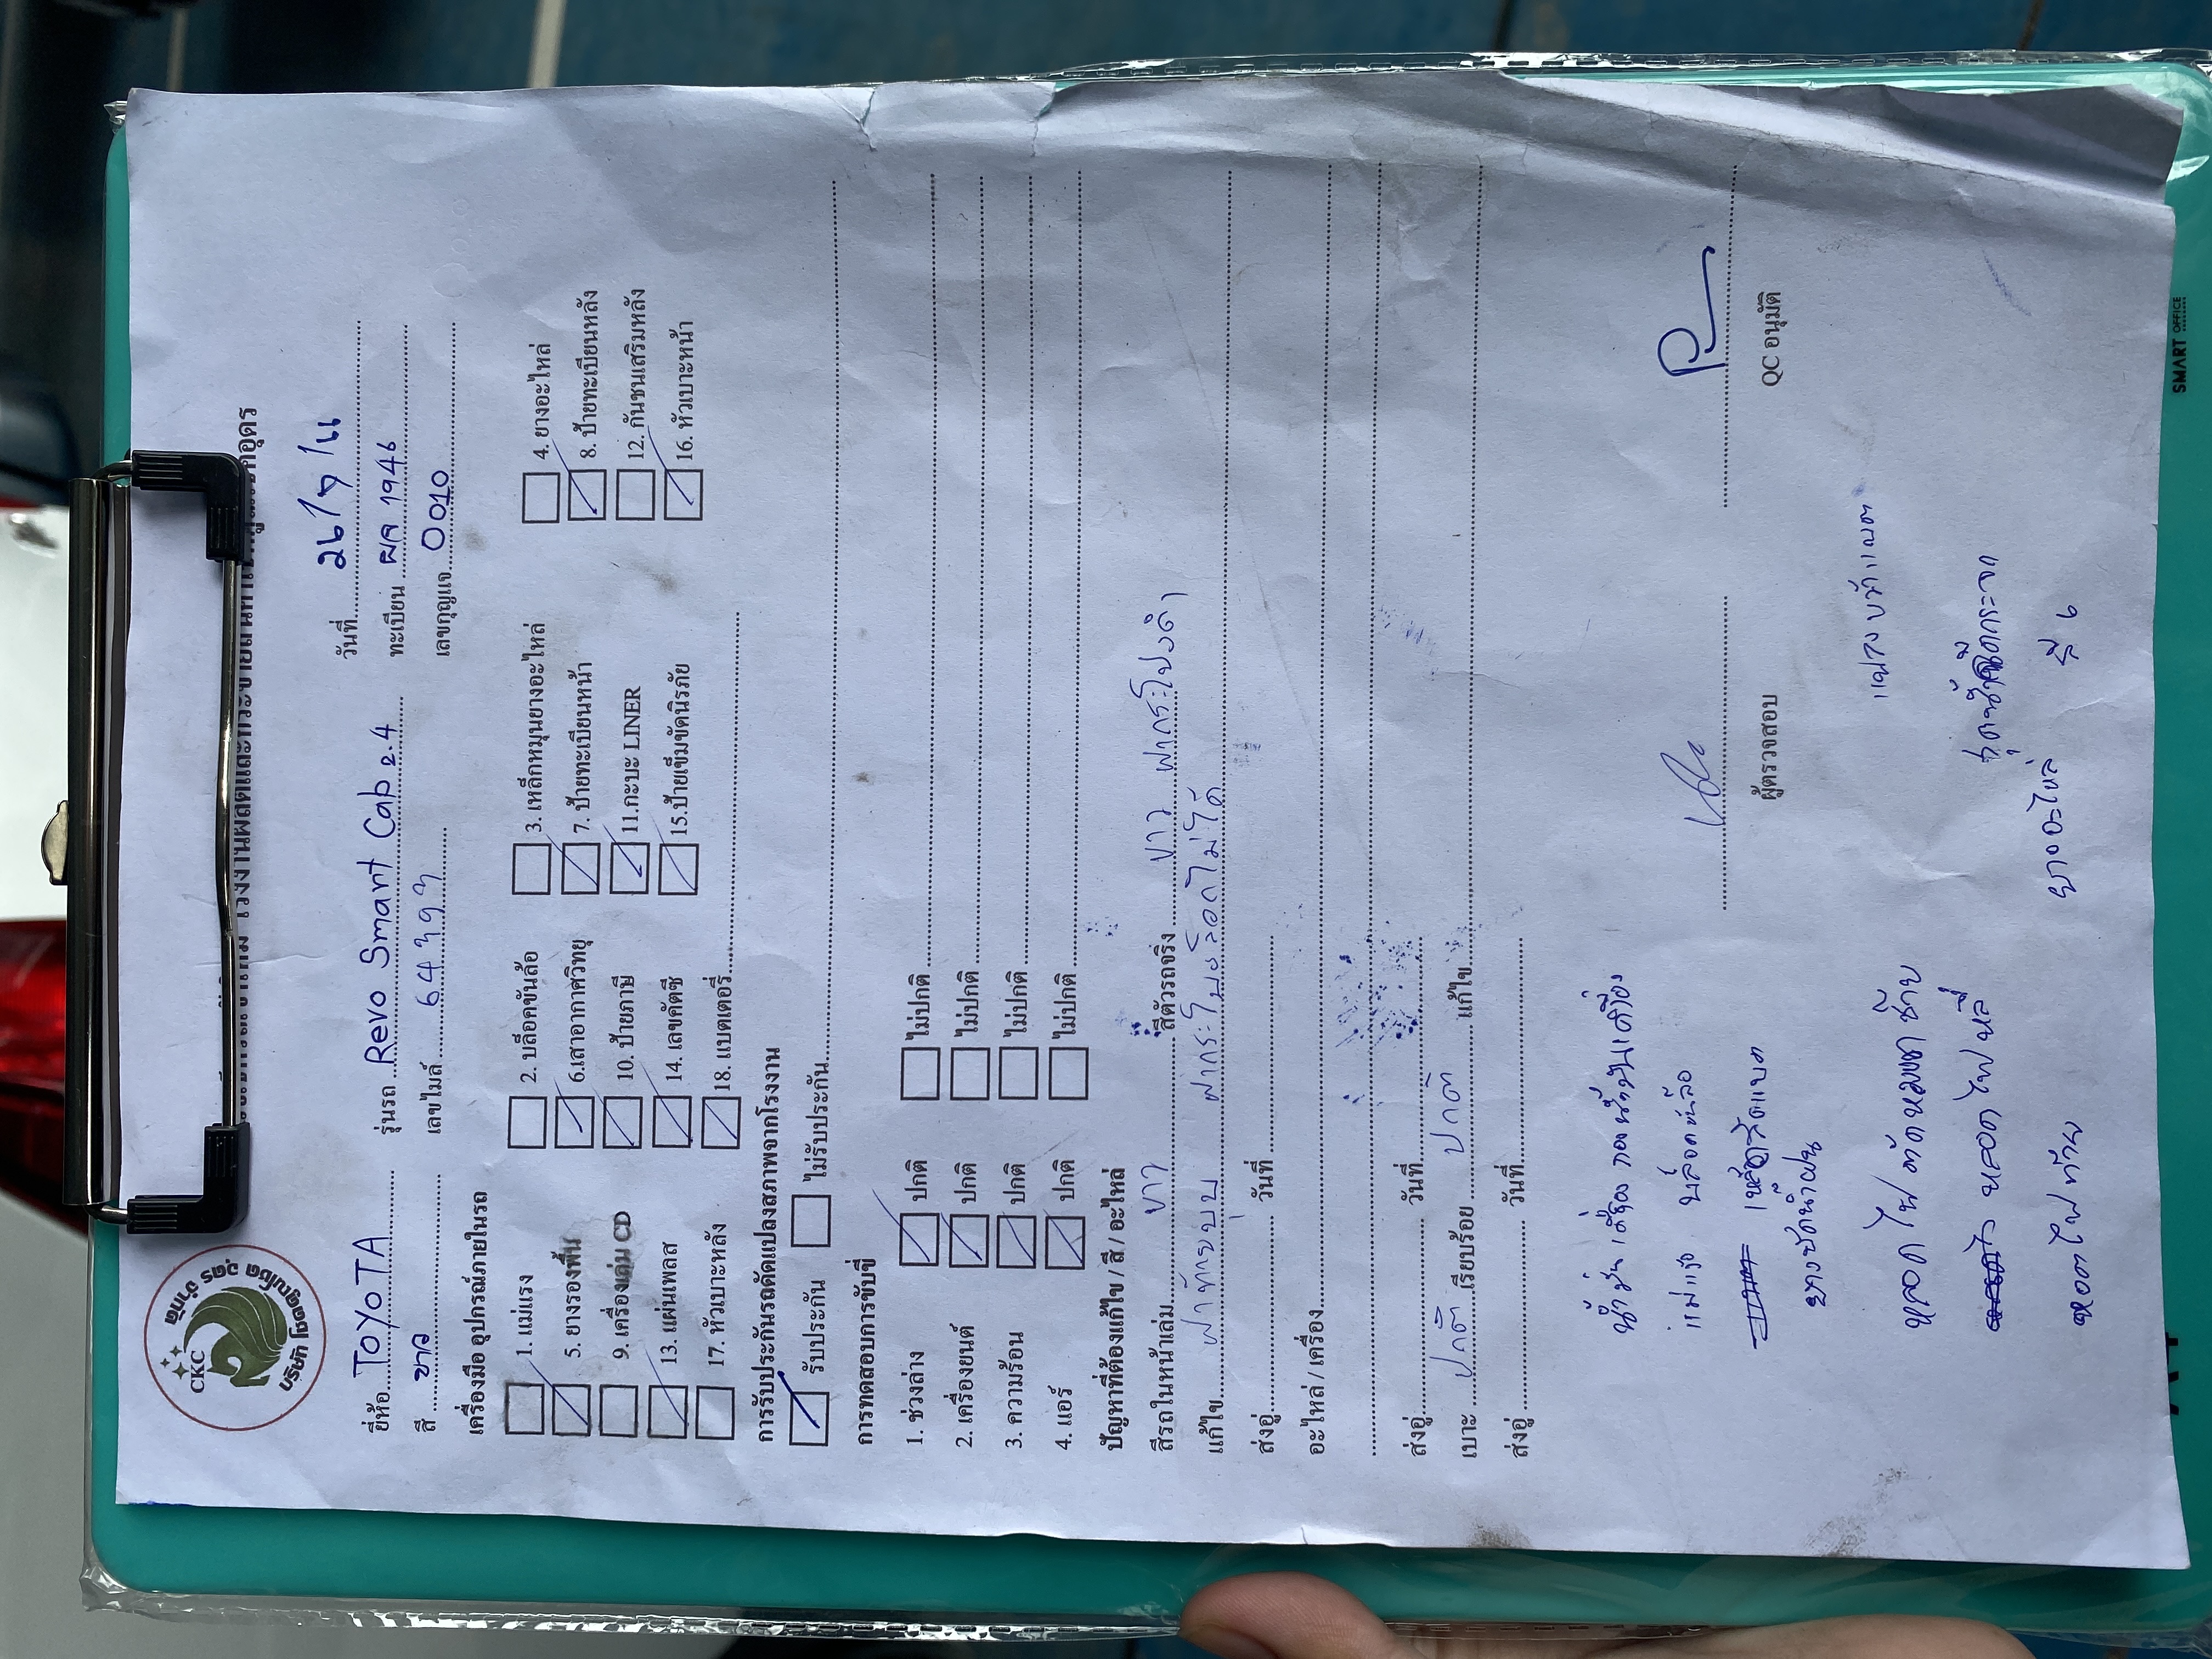 CKC
บริษัท ชิคคูณโชค อุดร จำกัด
วันที่ 26/7/
ยี่ห้อ TOYOTA รุ่นรถ Revo Smart Cab 2.4 ทะเบียน ผจ 1946
สี ขาว เลขไมล์ เลขกุญแจ 0010
เครื่องมือ อุปกรณ์ภายในรถ
1. แม่แรง 2. บล๊อคขันล้อ 3. เหล็กหมุนยางอะไหล่ 4. ยางอะไหล่
5. ยางรองพื้น 6.เสาอากาศวิทยุ 7. ป้ายทะเบียนหน้า 8. ป้ายทะเบียนหลัง
9. เครื่องเล่น CD 10. ป้ายภาษี 11.กะบะ LINER 12. กันชนเสริมหลัง
13. แผ่นเพลส 14. เลขคัตซี 15.ป้ายเข็มขัดนิรภัย 16. หัวเบาะหน้า
17. หัวเบาะหลัง 18. แบตเตอรี่
การรับประกันรถดัดแปลงสภาพจากโรงงาน
รับประกัน ไม่รับประกัน
การทดสอบการขับขี่
1. ช่วงล่าง ปกติ ไม่ปกติ
2. เครื่องยนต์ ปกติ ไม่ปกติ
3. ความร้อน ปกติ ไม่ปกติ
4. แอร์ ปกติ ไม่ปกติ
ปัญหาที่ต้องแก้ไข / สี / อะไหล่
สีรถในหน้าเล่ม ขาว สีตัวรถจริง ขาว ฝากระโปงดำ
แก้ไข ฝาท้ายบุบ ฝากระโปงล็อกไม่ได้
ส่งอู่ วันที่
อะไหล่ / เครื่อง
ส่งอู่ วันที่
เบาะ ปกติ เรียบร้อย ปกติ แก้ไข
ส่งอู่ วันที่
ผู้ตรวจสอบ QC อนุมัติ
น้ำมันเครื่อง กรองน้ำมันเครื่อง
แม่แรง บล็อคขันล้อ
เหล็กรัดแบต
ยางปัดน้ำฝน
แผงบังแดด
หลอดไฟตัดหมอกซ้าย
หลอดไฟหรี่
ชุดฉีดกระจก
หลอดไฟท้าย
ยางอะไหล่ รู 6
SMART OFFICE